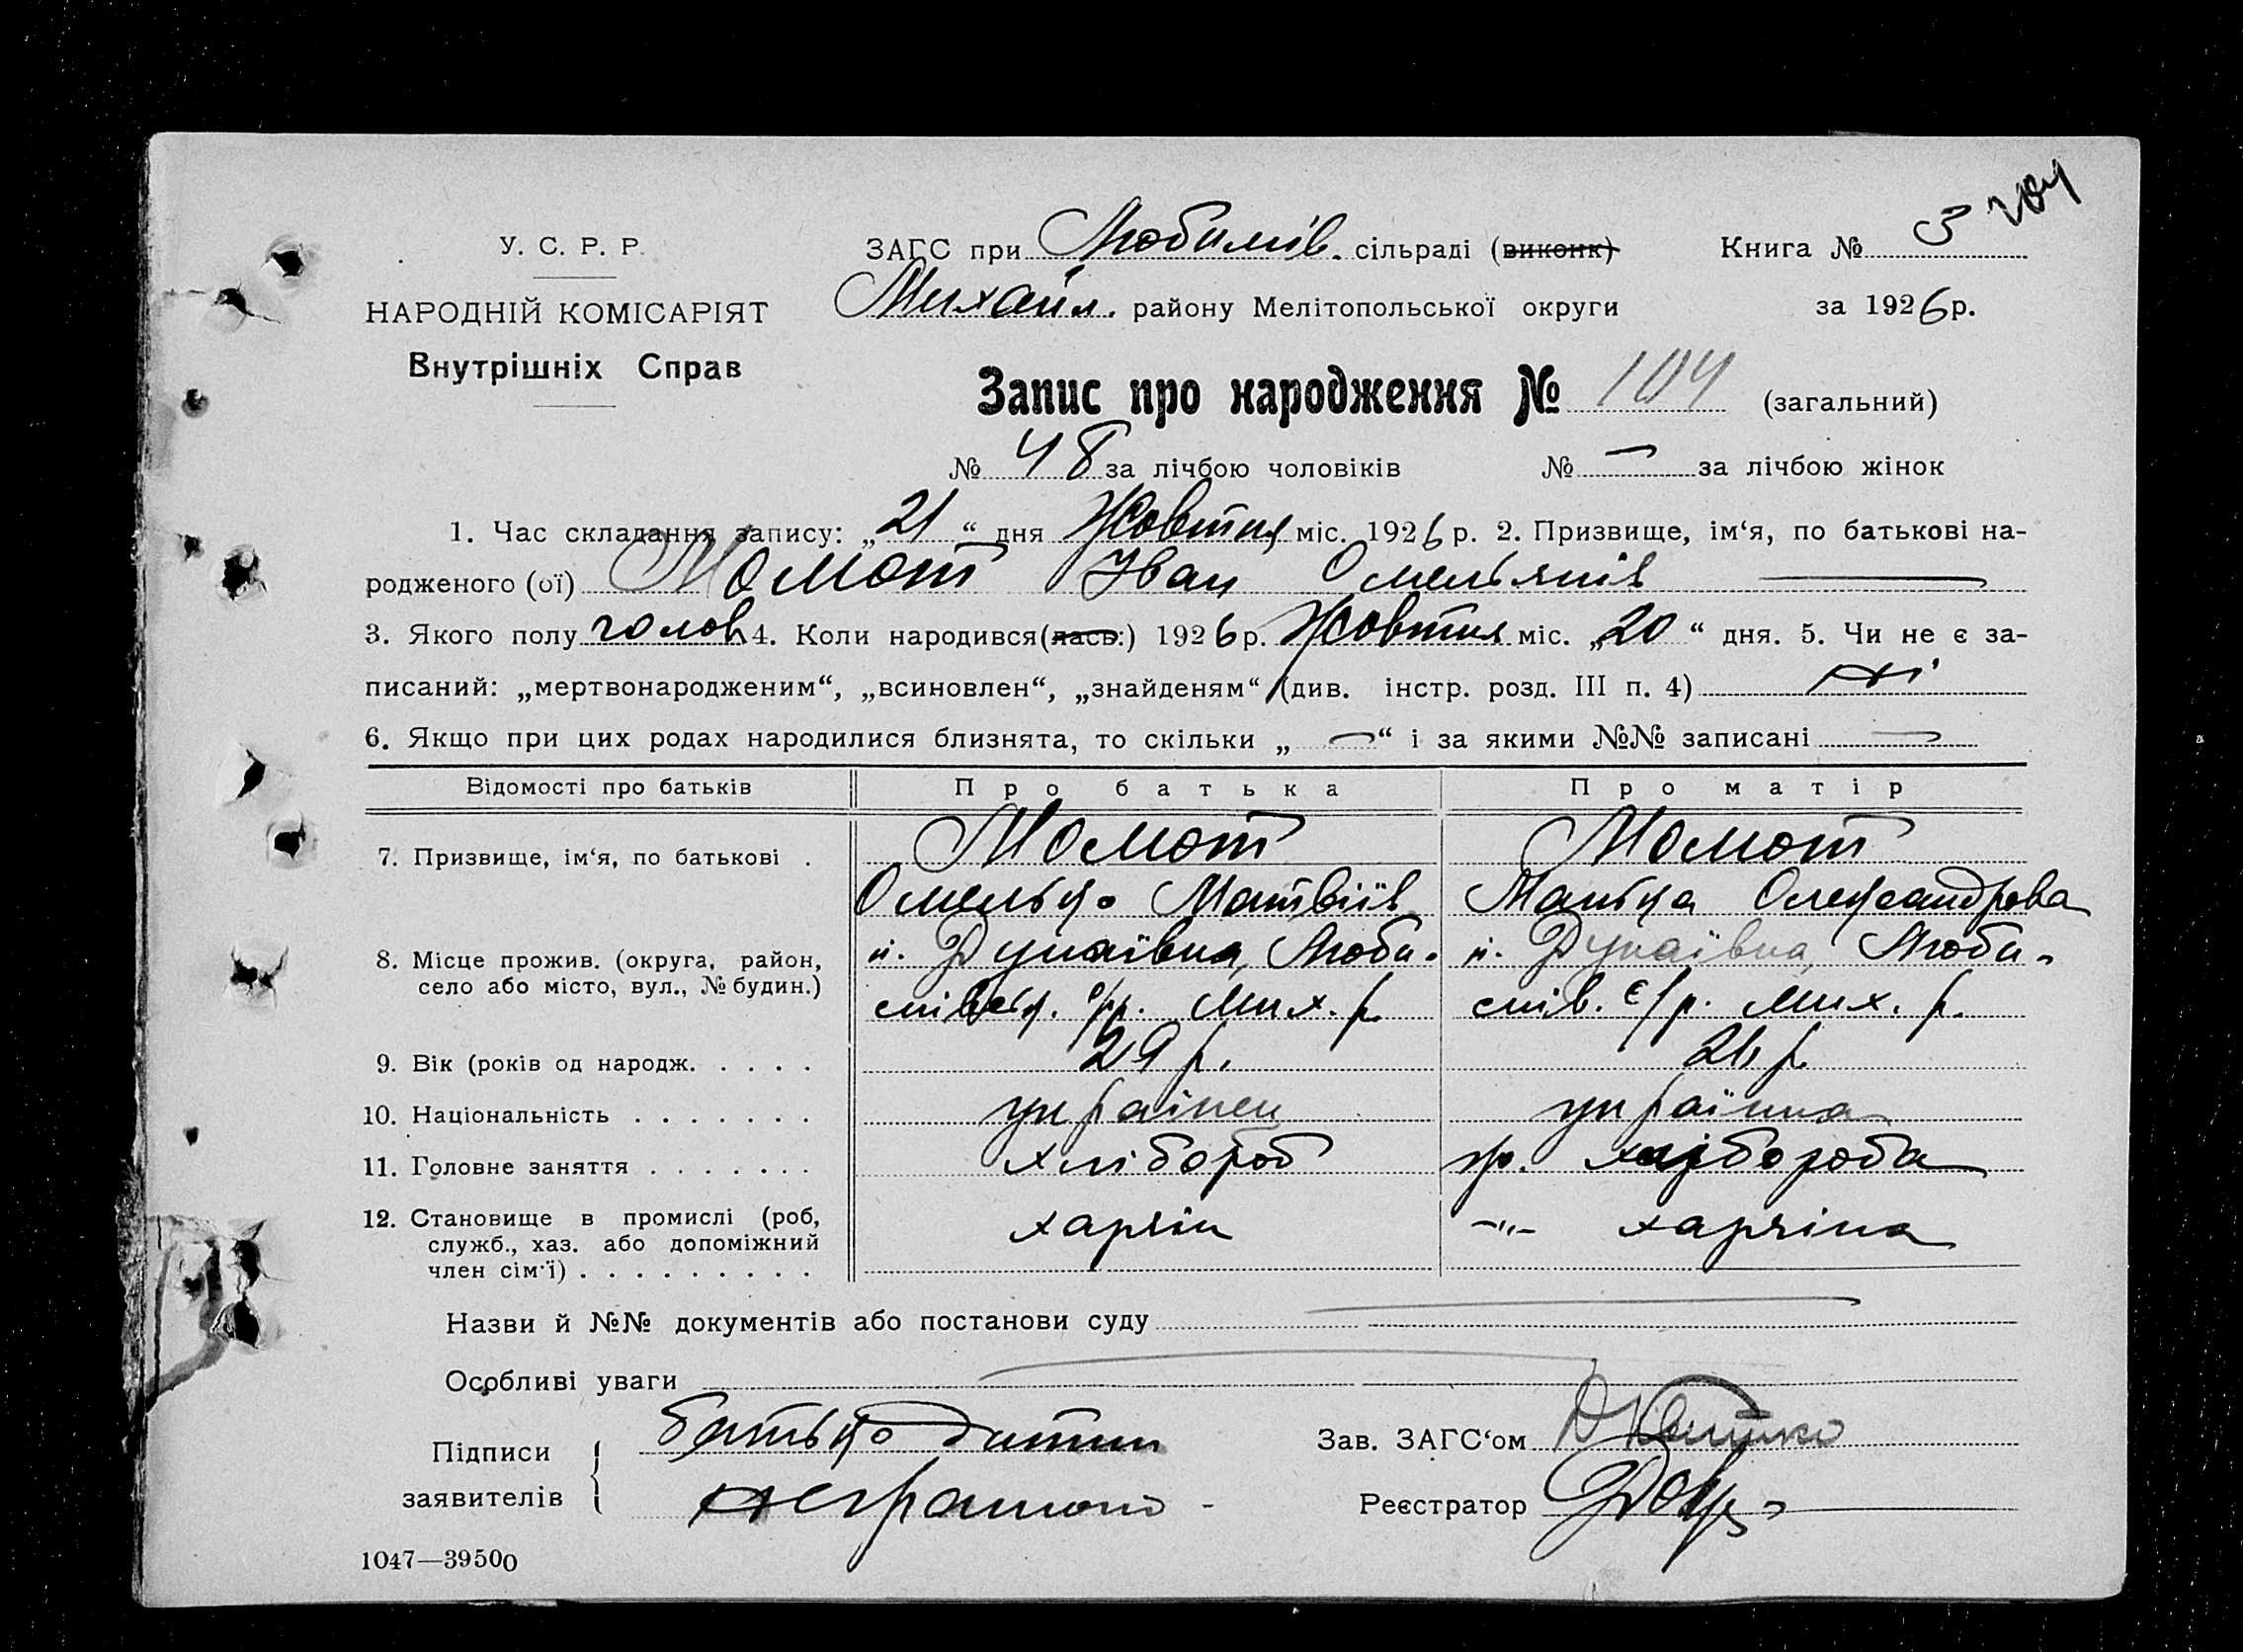 204
У. С. Р. Р.
ЗАГС при Любимів. сільраді (виконк)
Книга № 3
НАРОДНІЙ КОМІСАРІЯТ
Михайл. району Мелітопольської округи
за 1926 р.
Внутрішніх Справ
Запис про народження № 104 (загальний)
№ 48 за лічбою чоловіків № — за лічбою жінок
1. Час складання запису: „21“ дня Жовтня міс. 1926 р. 2. Призвище, ім‘я, по батькові на-
родженого (ої) Момот Іван Омельянів
3. Якого полу чолов 4. Коли народився(лась:) 1926 р. Жовтня міс. „20“ дня. 5. Чи не є за-
писаний: „мертвонародженим“, „всиновлен“, „знайденям“ (див. інстр. розд. III п. 4) ні
6. Якщо при цих родах народилися близнята, то скільки „ — “ і за якими №№ записані —
Відомості про батьків Про батька Про матір
7. Призвище, ім‘я, по батькові . Момот Момот
Омелько Матвіїв
Олександрова
8. Місце прожив. (округа, район,
село або місто, вул., № будин.)
х. Дунаївка, Люби-
х. Дунаївка, Люби-
мівськ. с/р. Мих. р.
мів. с/р. Мих. р.
9. Вік (років од народж. . . . . 29 р. 26 р.
10. Національність . . . . . . . українец українка
11. Головне заняття . . . . . . . хлібороб хлібороба
12. Становище в промислі (роб,
служб., хаз. або допоміжний
член сім‘ї) . . . . . . . . .
хазяїн
-„- хазяїна
Назви й №№ документів або постанови суду
Особливі уваги
Підписи
заявителів
батько дитини
неграмотн
Зав. ЗАГС‘ом
Реєстратор
1047—39500